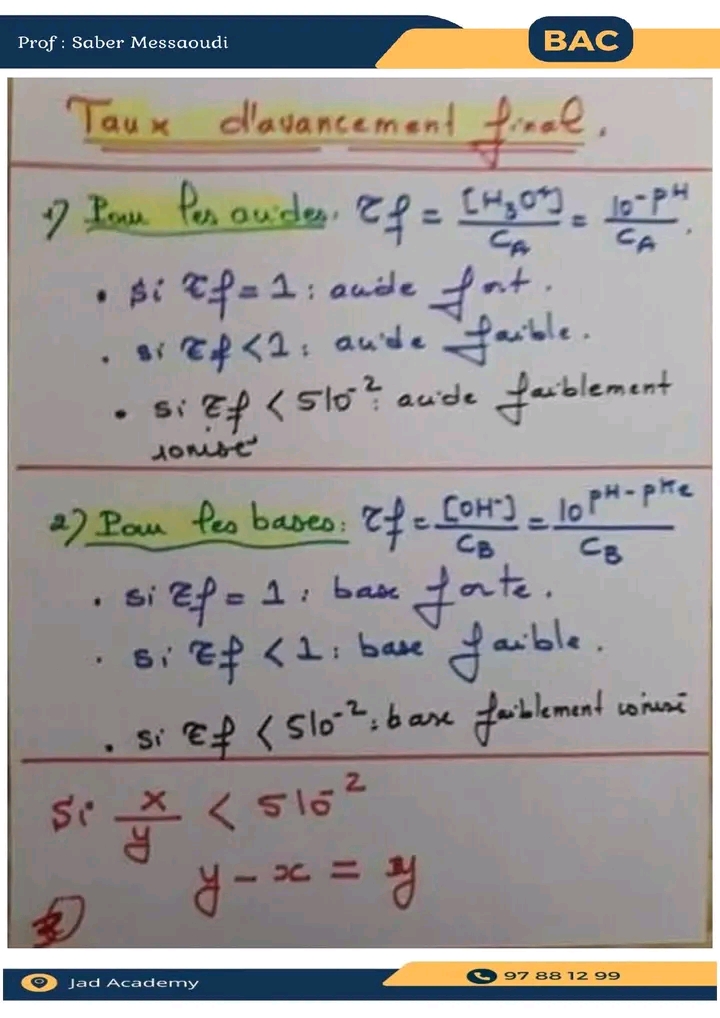 Prof : Saber Messaoudi
BAC
Taux d'avancement final.
1) Pour les acides. τf = [H₃O⁺]/CA = 10^-pH/CA.
• Si τf = 1 : acide fort.
• si τf < 1 : acide faible.
• si τf < 5 10⁻² : acide faiblement
ionisé
2) Pour les bases : τf = [OH⁻]/CB = 10^pH-pKe/CB
• si τf = 1 : base forte.
• si τf < 1 : base faible.
• si τf < 5 10⁻² : base faiblement ionisé
Si x/y < 5 10⁻²
y - x = y
Jad Academy
97 88 12 99